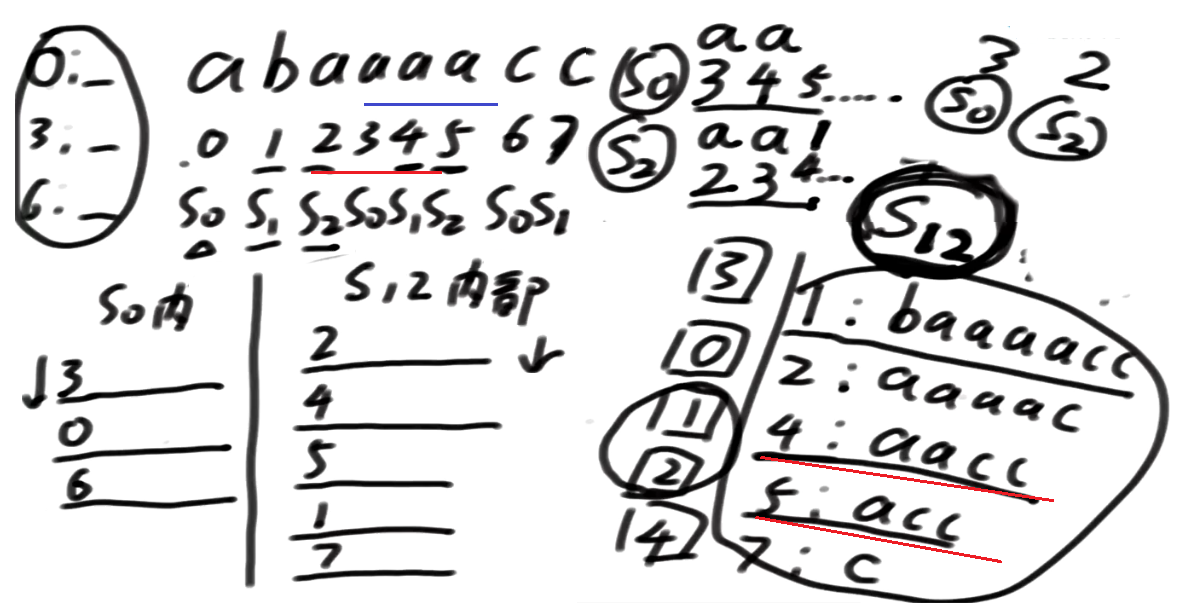 0:_
3:_
6:_
a b a a a a c c
0 1 2 3 4 5 6 7
S0 S1 S2 S0 S1 S2 S0 S1
S0
aa
3 4 5.....
S2
aa1
2 3 4...
3 2
S0 S2
S12
S0内
↓3
0
6
S12内部
2 ↓
4
5
1
7
3
0
1
2
4
1: baaaacc
2: aaaac
4: aacc
5: acc
7: c